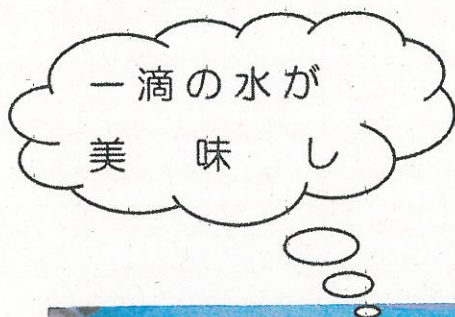 一滴の水が
美味し